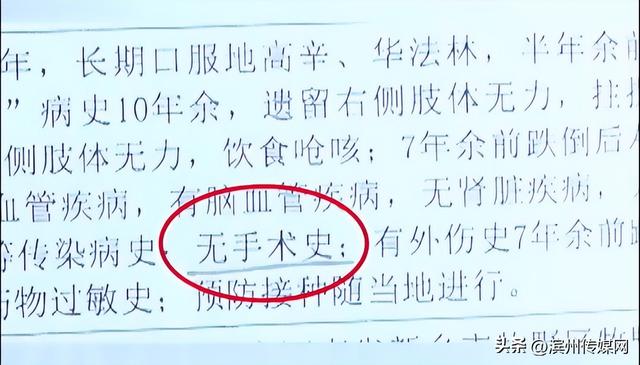 年，长期口服地高辛、华法林，半年余前
”病史10年余，遗留右侧肢体无力，拄
侧肢体无力，饮食呛咳；7年余前跌倒后
血管疾病，有脑血管疾病，无肾脏疾病，
等传染病史，无手术史；有外伤史7年余前
药物过敏史；预防接种随当地进行。
头条 @滨州传媒网